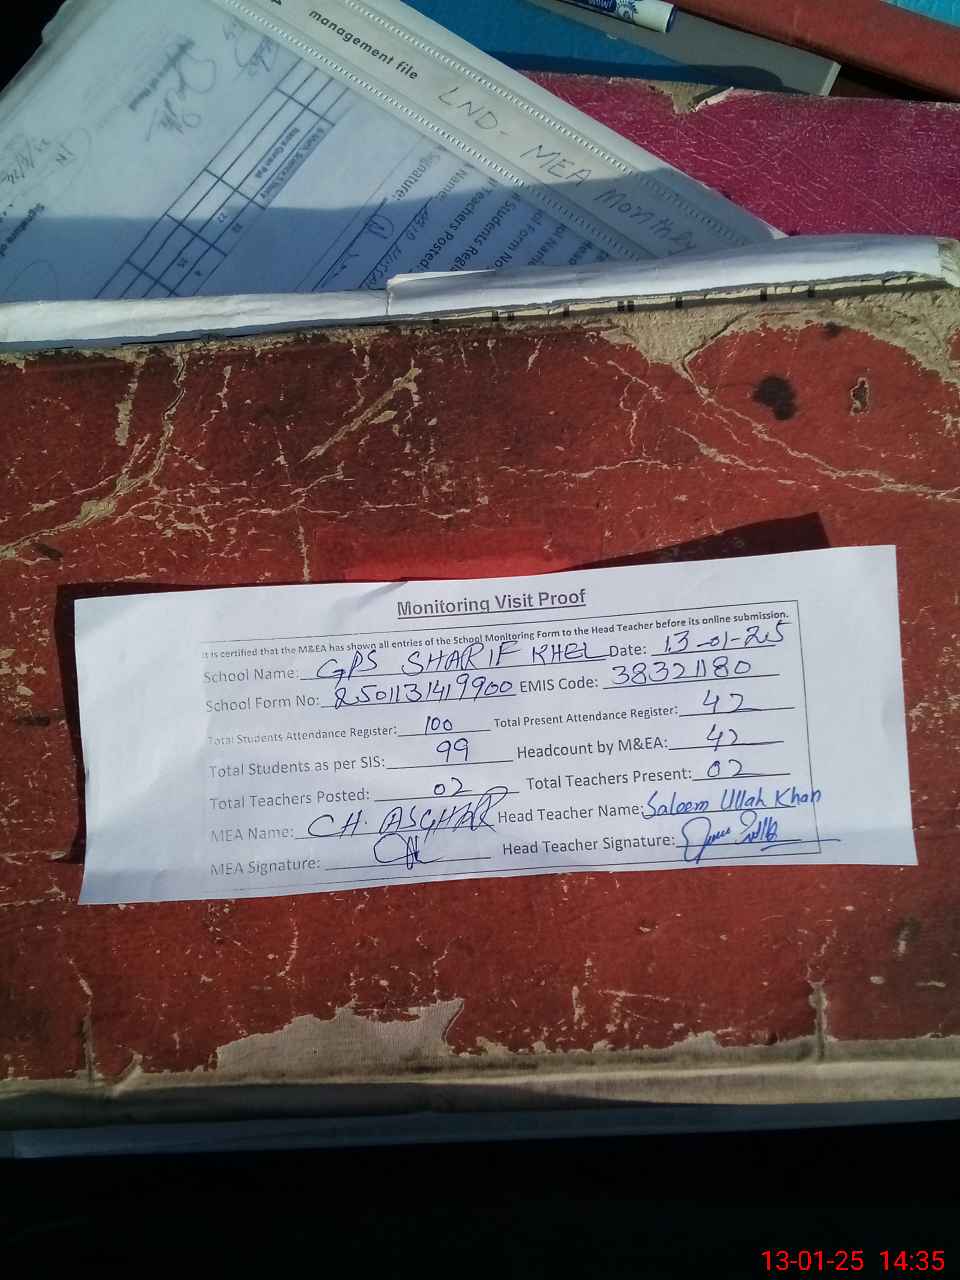 management file
LND-
MEA Monthly
Signature:
Name:
Monitoring Visit Proof
It is certified that the M&EA has shown all entries of the School Monitoring Form to the Head Teacher before its online submission.
School Name: GPS SHARIF KHEL Date: 13-01-25
School Form No: EMIS Code: 38321180
Total Students Attendance Register: 100 Total Present Attendance Register: 42
Total Students as per SIS: 99 Headcount by M&EA: 42
Total Teachers Posted: 02 Total Teachers Present: 02
MEA Name: CH. ASGHAR Head Teacher Name: Saleem Ullah Khan
MEA Signature: Head Teacher Signature:
13-01-25 14:35